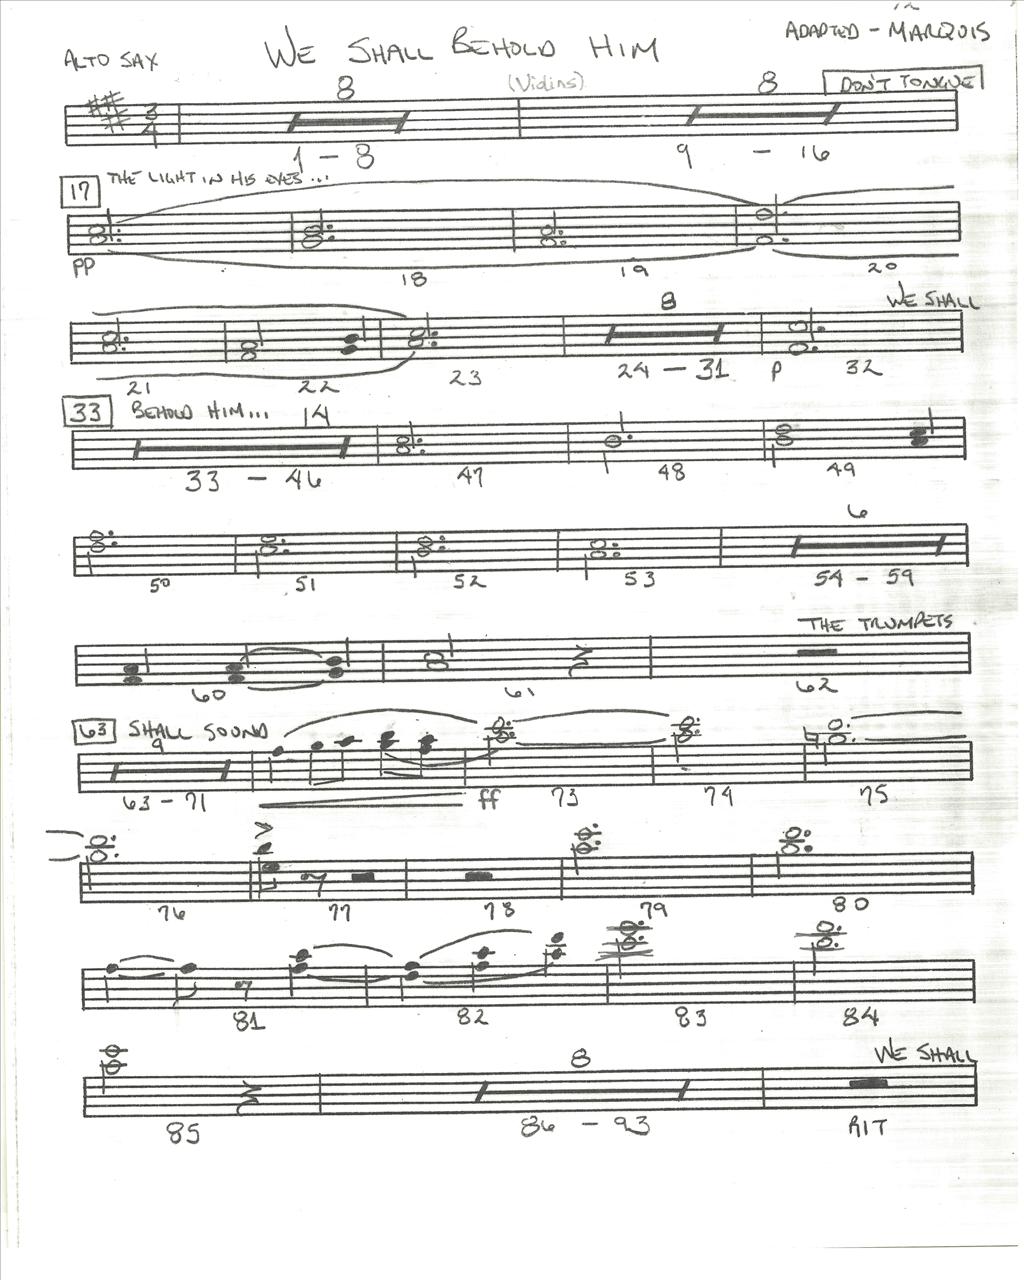 ALTO SAX WE SHALL BEHOLD HIM ADAPTED - MARQUIS
8 (Violins) 8 DON'T TONGUE
3
4
1 - 8 9 - 16
17 THE LIGHT IN HIS EYES...
PP 18 19 20
8 WE SHALL
21 22 23 24 - 31 P 32
33 BEHOLD HIM... 14
33 - 46 47 48 49
6
50 51 52 53 54 - 59
THE TRUMPETS
60 61 62
63 SHALL SOUND
9
63 - 71 ff 73 74 75
76 77 78 79 80
81 82 83 84
8 WE SHALL
85 86 - 93 RIT